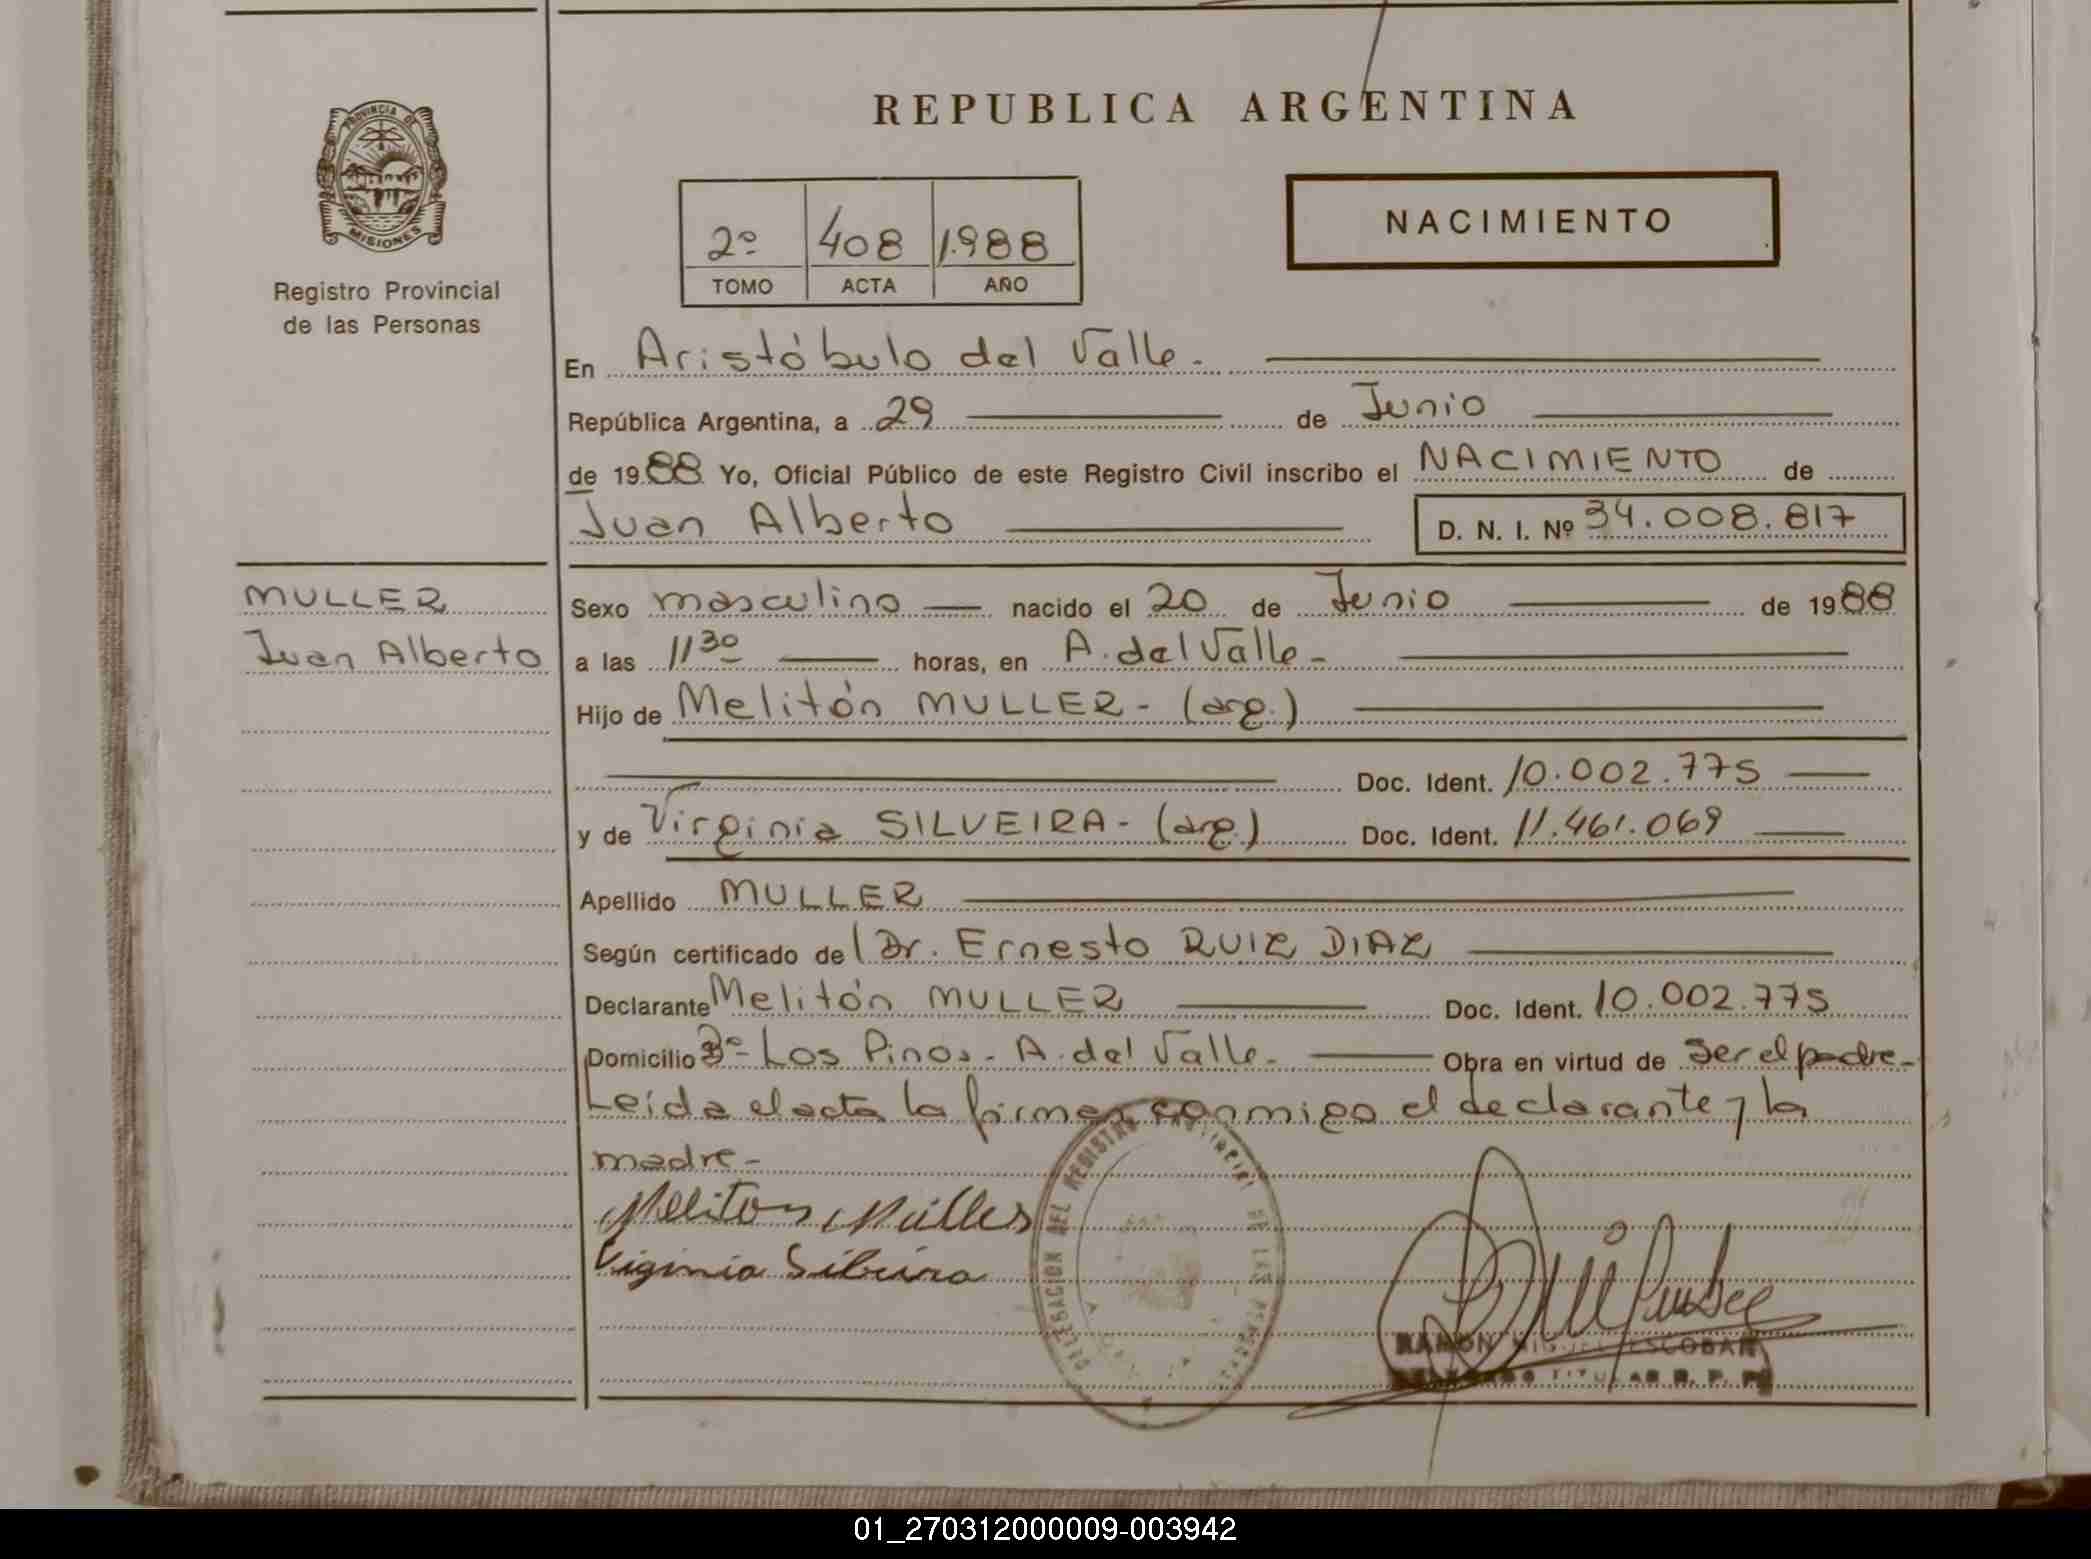 REPUBLICA ARGENTINA
PROVINCIA DE
MISIONES
Registro Provincial
de las Personas
NACIMIENTO
2º 408 1.988
TOMO ACTA AÑO
En Aristóbulo del Valle.
República Argentina, a 29 de Junio
de 1988 Yo, Oficial Público de este Registro Civil inscribo el NACIMIENTO de
Juan Alberto D. N. I. Nº 34.008.817
MULLER
Juan Alberto
Sexo masculino nacido el 20 de Junio de 1988
a las 11 30 horas, en A. del Valle -
Hijo de Melitón MULLER - (arg.)
Doc. Ident. 10.002.775
y de Virginia SILVEIRA - (arg.) Doc. Ident. 11.461.069
Apellido MULLER
Según certificado del Dr. Ernesto RUIZ DIAZ
Declarante Melitón MULLER Doc. Ident. 10.002.775
Domicilio Bº- Los Pinos - A. del Valle - Obra en virtud de ser el padre -
Leída el acta la firman conmigo el declarante y la
madre -
Meliton Muller
Viginia Silveira
DELEGACION DEL REGISTRO PROVINCIAL DE LAS PERSONAS
RAMON MIGUEL ESCOBAR
DELEGADO TITULAR R. P. P.
01_270312000009-003942